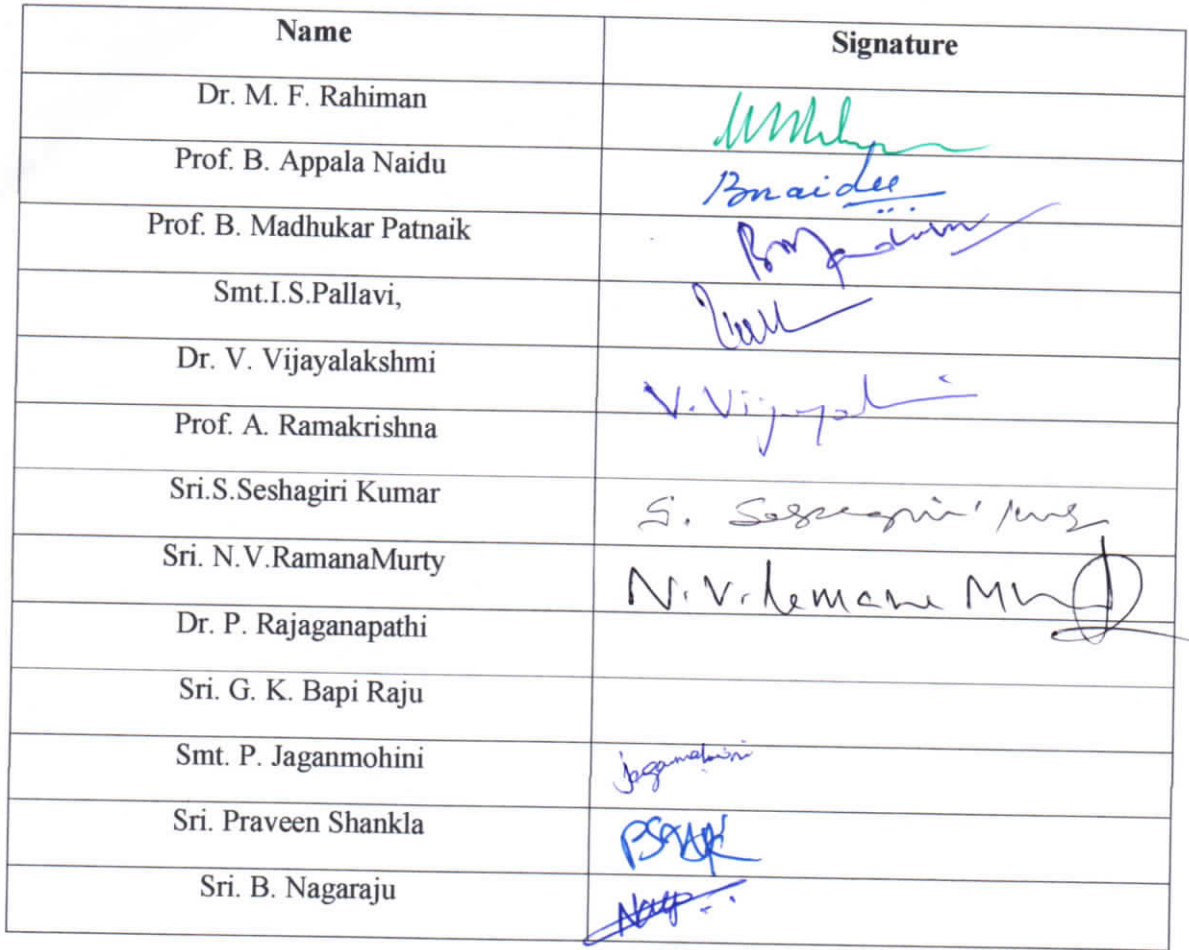 Name Signature
Dr. M. F. Rahiman
Prof. B. Appala Naidu Bnaidu
Prof. B. Madhukar Patnaik
Smt.I.S.Pallavi,
Dr. V. Vijayalakshmi
Prof. A. Ramakrishna
Sri.S.Seshagiri Kumar
Sri. N.V.RamanaMurty
Dr. P. Rajaganapathi
Sri. G. K. Bapi Raju
Smt. P. Jaganmohini
Sri. Praveen Shankla
Sri. B. Nagaraju